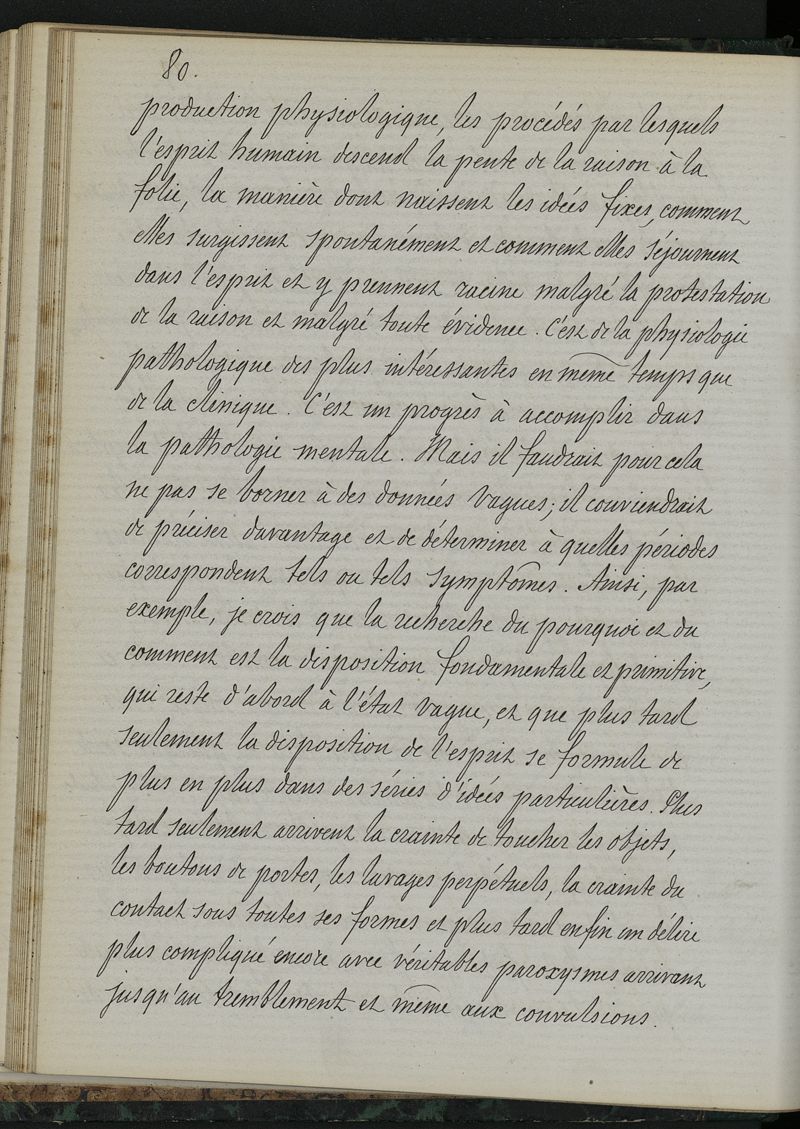 80.
production physiologique, les procédés par lesquels
l'esprit humain descend la pente de la raison à la
folie, la manière dont naissent les idées fixes, comment
elles surgissent spontanément et comment elles séjournent
dans l'esprit et y prennent racine malgré la protestation
de la raison et malgré toute évidence. C'est de la physiologie
pathologique des plus intéressantes en même temps que
de la clinique. C'est un progrès à accomplir dans
la pathologie mentale. Mais il faudrait pour cela
ne pas se borner à des données vagues; il conviendrait
de préciser davantage et de déterminer à quelles périodes
correspondent tels ou tels symptômes. Ainsi, par
exemple, je crois que la recherche du pourquoi et du
comment est la disposition fondamentale et primitive,
qui reste d'abord à l'état vague, et que plus tard
seulement la disposition de l'esprit se formule de
plus en plus dans des séries d'idées particulières. Plus
tard seulement arrivent la crainte de toucher les objets,
les boutons de portes, les lavages perpétuels, la crainte du
contact sous toutes ses formes et plus tard enfin un délire
plus compliqué encore avec véritables paroxysmes arrivant
jusqu'au tremblement et même aux convulsions.